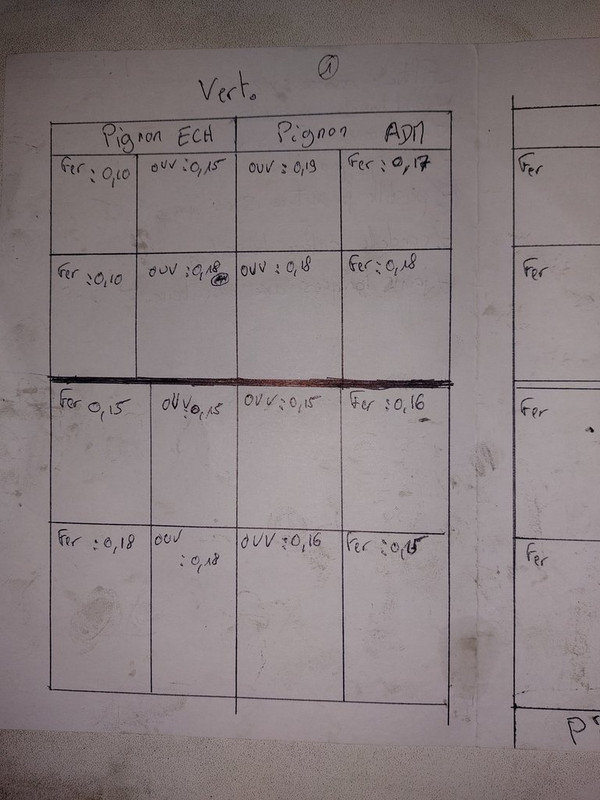 1
Vert.
Pignon ECH Pignon ADM
Fer : 0,10 OUV : 0,15 OUV : 0,19 Fer : 0,17 Fer
Fer : 0,10 OUV : 0,18 OUV : 0,18 Fer : 0,18 Fer
Fer 0,15 OUV : 0,15 OUV : 0,15 Fer : 0,16 Fer
Fer : 0,18 OUV : 0,18 OUV : 0,16 Fer : 0,15 Fer